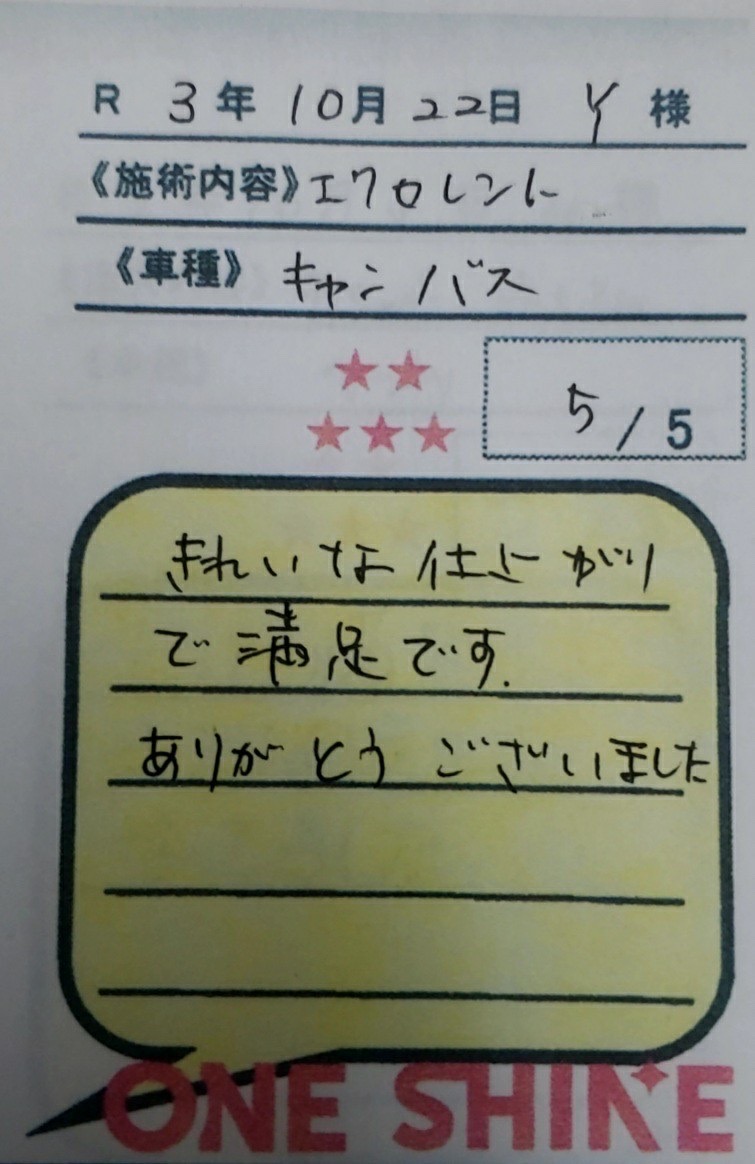 R 3年 10月 22日 Y 様
《施術内容》エクロレント
《車種》キャンバス
5/5
きれいな仕上がり
で満足です.
ありがとうございました
ONE SHINE